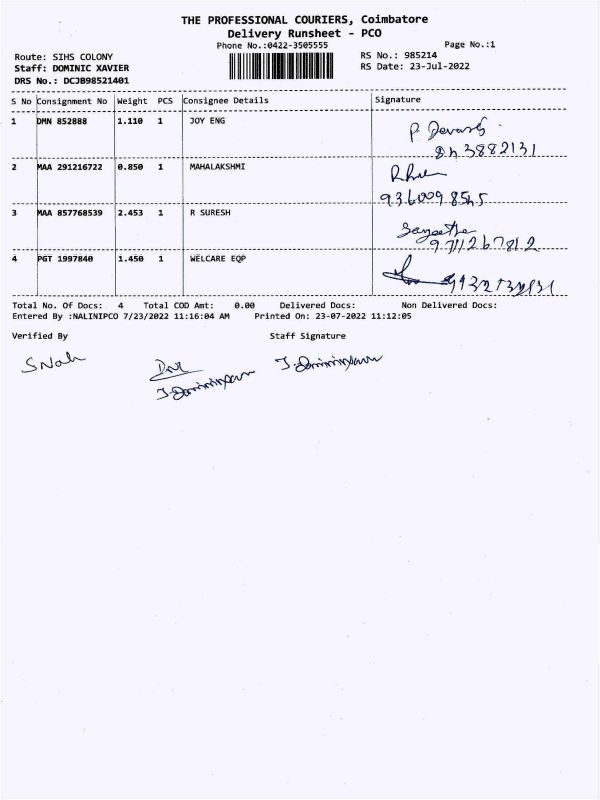 THE PROFESSIONAL COURIERS, Coimbatore
Delivery Runsheet - PCO
Phone No.:0422-3505555
Page No.:1
Route: SIHS COLONY
RS No.: 985214
Staff: DOMINIC XAVIER
RS Date: 23-Jul-2022
DRS No.: DCJB98521401
S No Consignment No Weight PCS Consignee Details Signature
1 DMN 852888 1.110 1 JOY ENG
P. Devaraj
2 MAA 291216722 0.850 1 MAHALAKSHMI
9360098545
3 MAA 857768539 2.453 1 R SURESH
Sangeetha
9711267812
4 PGT 1997840 1.450 1 WELCARE EQP
Total No. Of Docs: 4 Total COD Amt: 0.00 Delivered Docs: Non Delivered Docs:
Entered By :NALINIPCO 7/23/2022 11:16:04 AM Printed On: 23-07-2022 11:12:05
Verified By Staff Signature